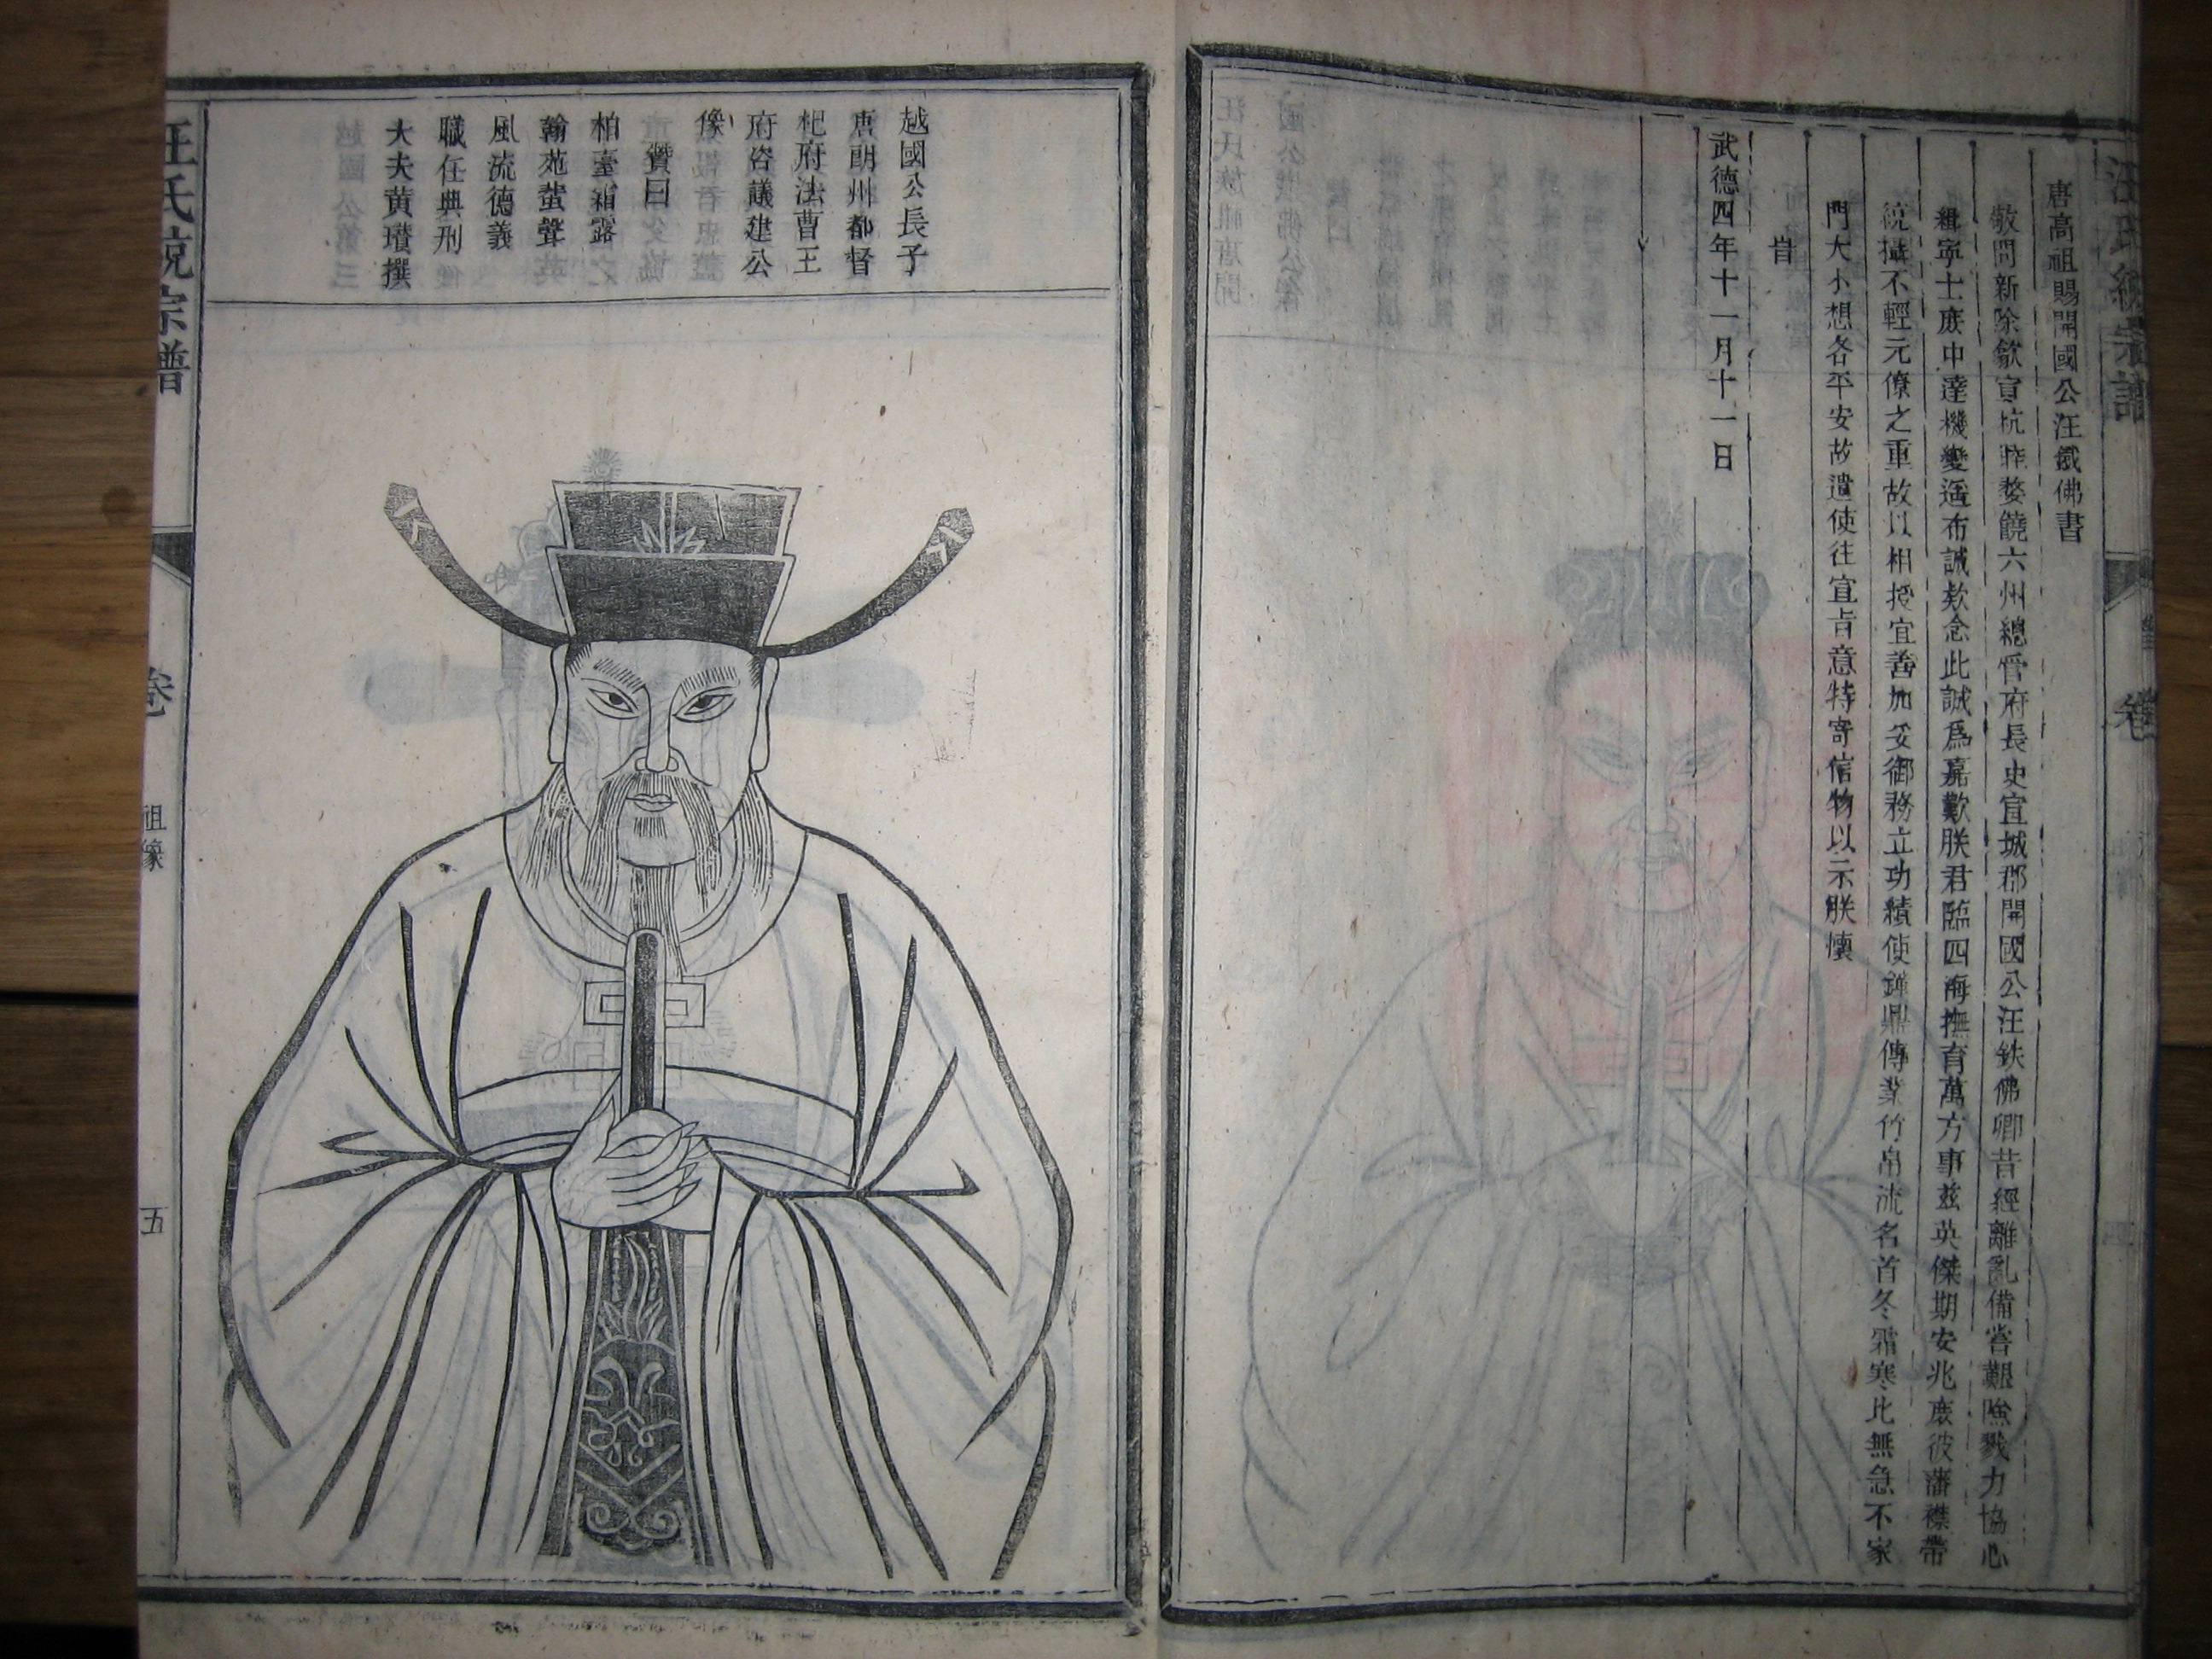 汪氏統宗譜
卷
唐高祖賜開國公汪鐵佛書
敬問新除歙宣杭睦婺饒六州總管府長史宣城郡開國公汪鉄佛卿昔經離亂備嘗艱險戮力協心
緝寧士庶中達機變遥布誠欵念此誠爲嘉歎朕君臨四海撫育萬方事兹英傑期安兆庶彼藩襟帶
統攝不輕元僚之重故以相授宜善加安御務立功績使鐘鼎傳業竹帛流名首冬霜寒比無急不家
門大小想各平安故遣使往宜旨意特寄信物以示朕懷
旹
武德四年十一月十一日
越國公長子
唐朗州都督
杞府法曹王
府咨議建公
像
贊曰
柏臺霜露
翰苑蜚聲
風流德義
職任典刑
大夫黄瓚撰
汪氏統宗譜
卷
祖像
五